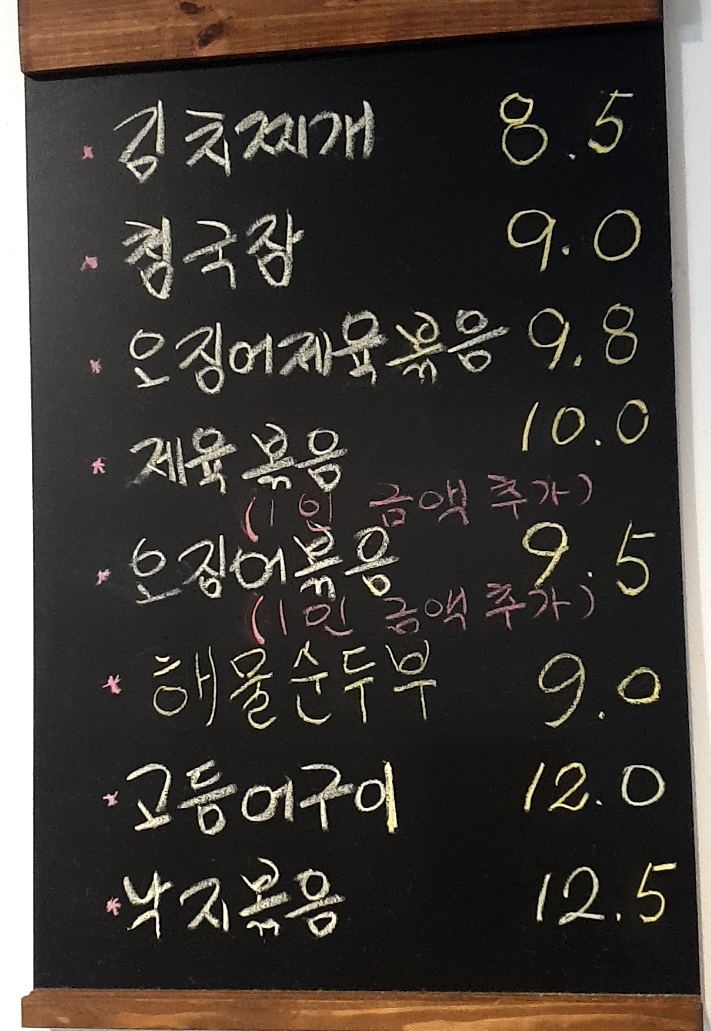 * 김치찌개 8.5
* 청국장 9.0
* 오징어제육볶음 9.8
* 제육볶음 10.0
(1인 금액 추가)
* 오징어볶음 9.5
(1인 금액 추가)
* 해물순두부 9.0
* 고등어구이 12.0
* 낙지볶음 12.5